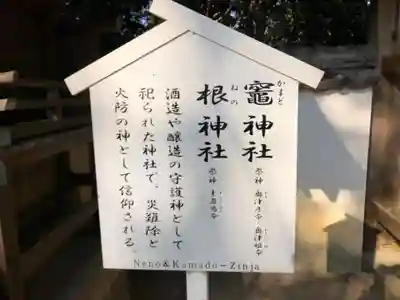 かまど
竈神社
祭神 奥津彦命 奥津姫命
ねの
根神社
祭神 素盞嗚命
酒造や醸造の守護神として
祀られた神社で、災難除と
火防の神として信仰される。
Neno&Kamado-Zinja